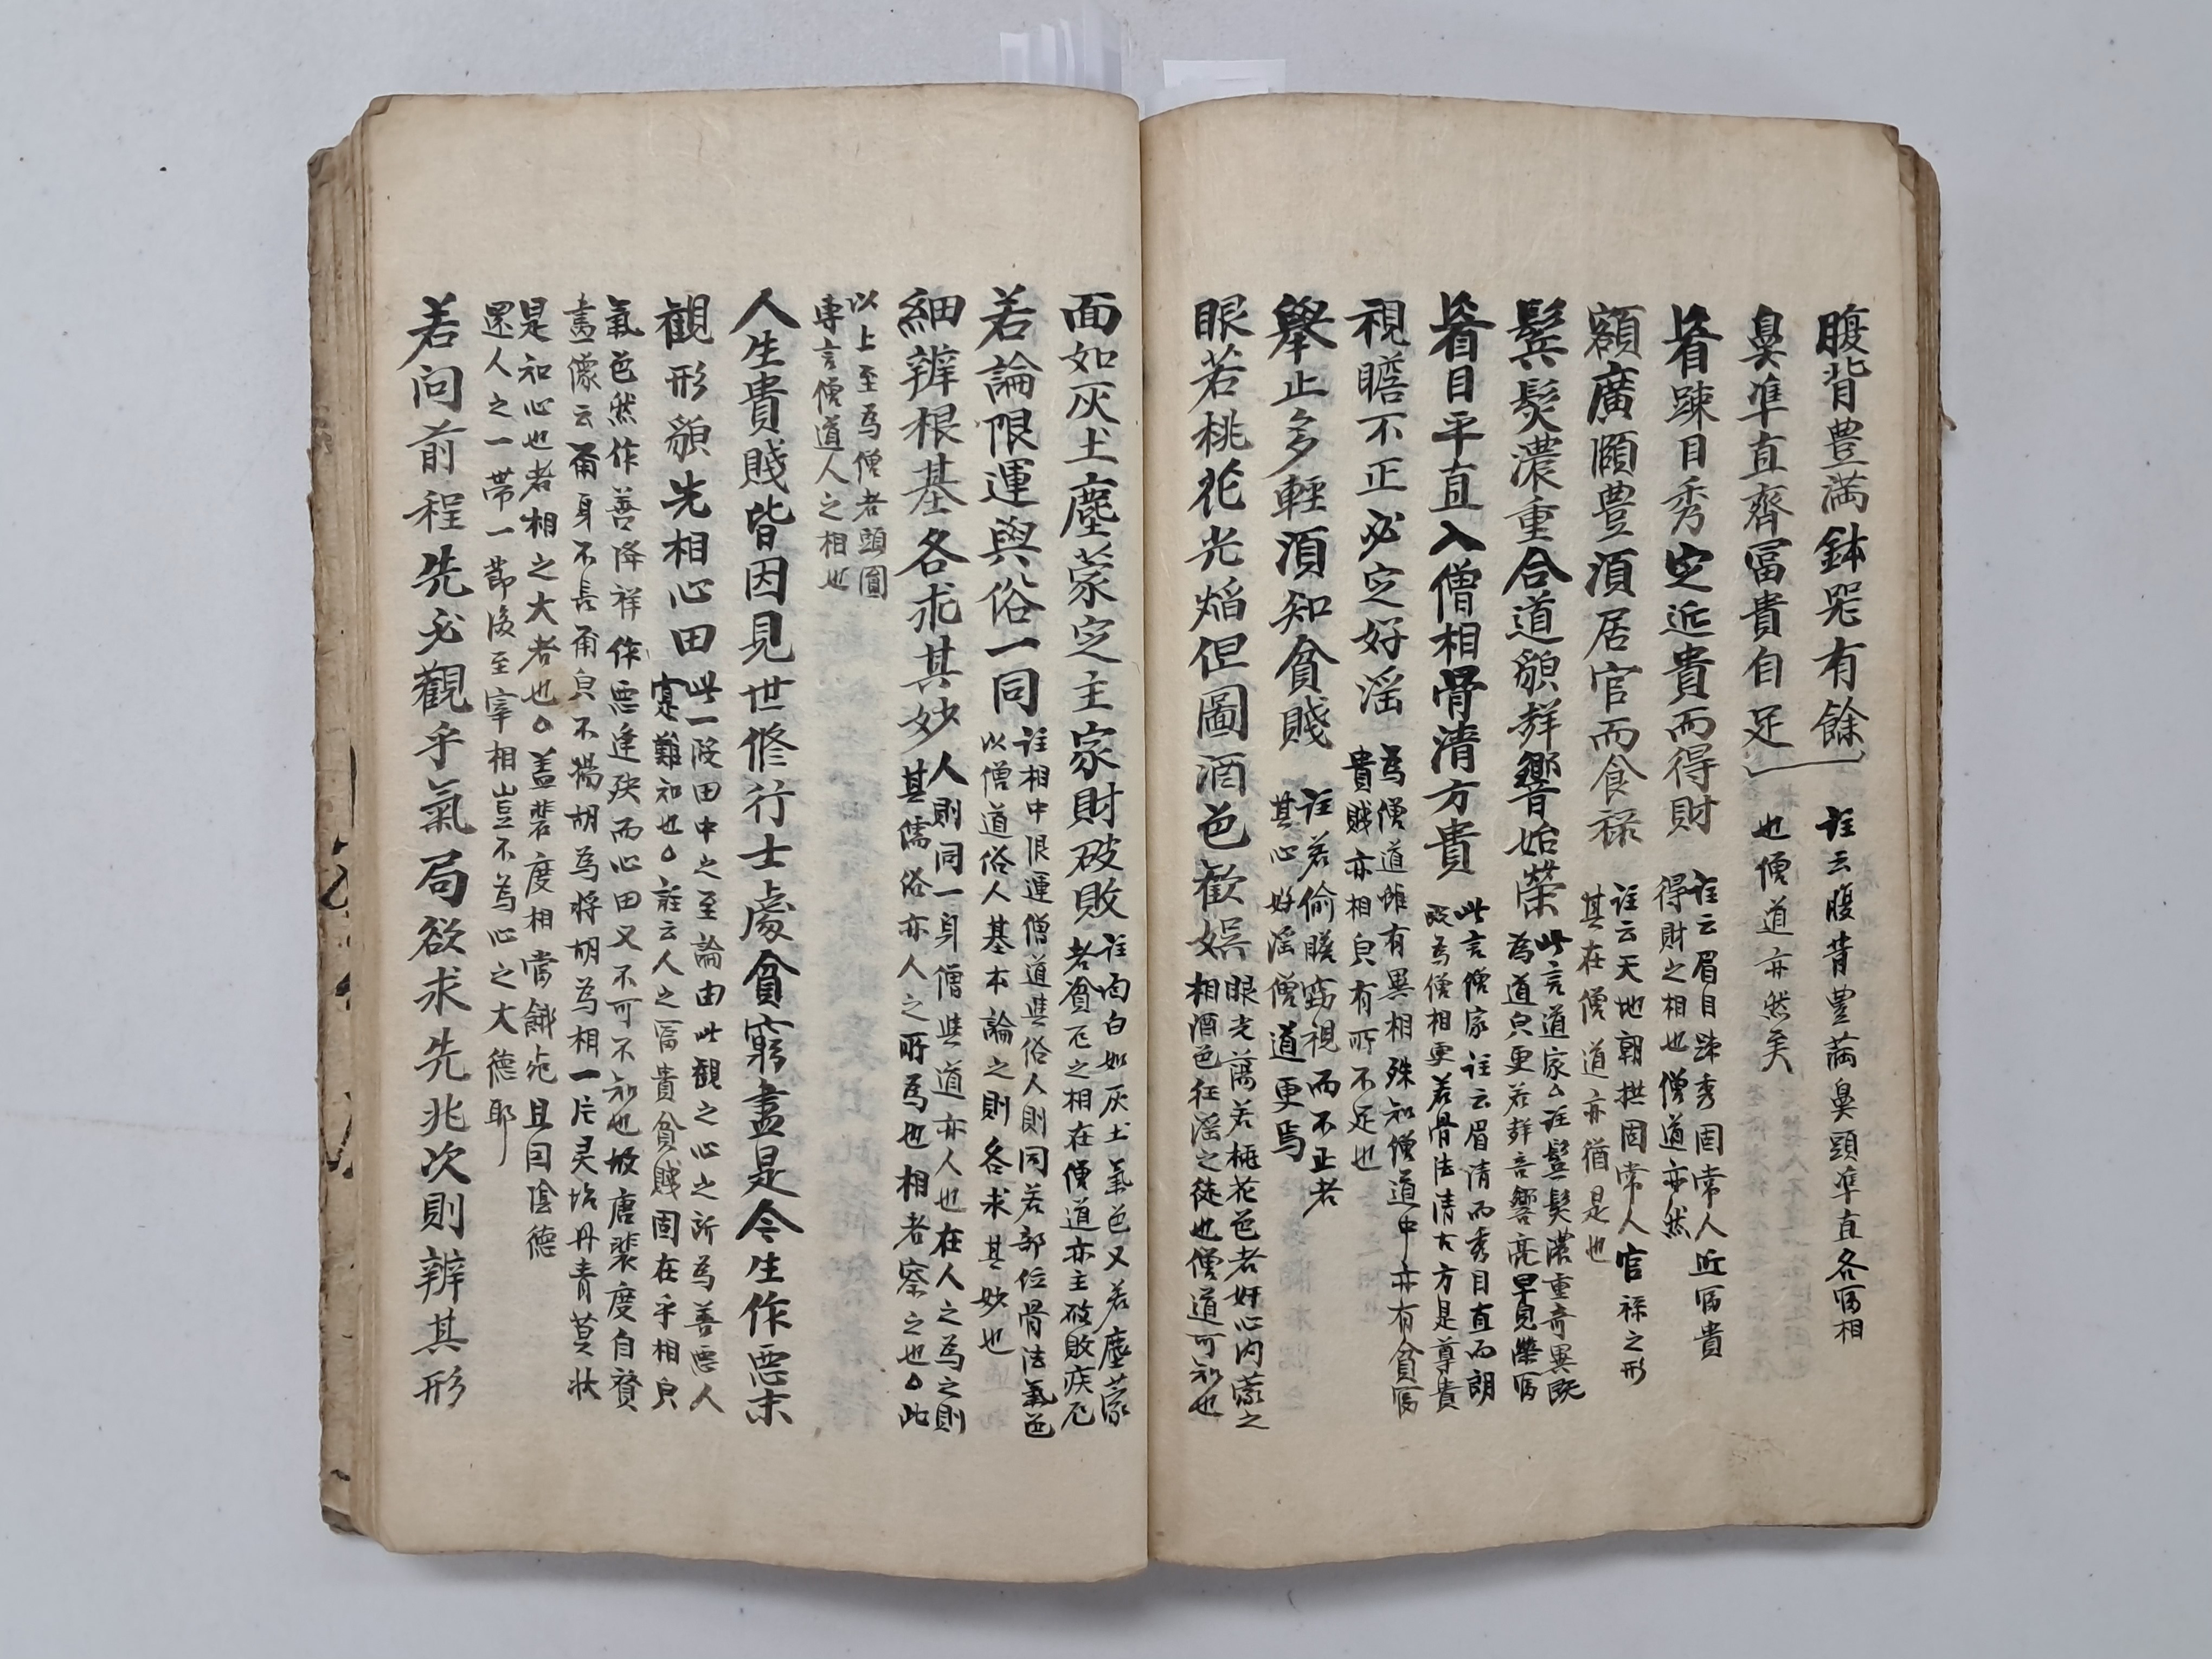 腹背豊满鉢盁有餘
鼻準直齊冨貴自足
註云腹背豊满鼻頭準直各冨相
也僧道亦然矣
眉踈目秀定近貴而得財
註云眉目踈秀固常人近冨貴
得財之相也僧道亦然
額廣頤豊湏居官而食禄
註云天地朝拱固常人官禄之形
其在僧道亦猶是也
鬂髮濃重合道貌聲響始榮
此言道家註髮濃重竒異既
為道皃更若聲音響亮早見榮冨
眉目平直入僧相骨清方貴
此言僧家註云眉清而秀目直而朗
既為僧相更若骨法清古方是尊貴
視瞻不正必定好滛
為僧道雖有異相殊知僧道中亦有貧冨
貴賤亦相皃有所不足也
舉止多輕湏知貧賤
註若偷瞻窃視而不正者
其心好滛僧道更焉
眼若桃花光焰但圖酒色歓娯
眼光蕩若桃花色者奸心内濛之
相酒色狂滛之徒也僧道可知也
面如灰土塵蒙定主家財破敗
註面白如灰土氣色又若塵蒙
者貧厄之相在僧道亦主破敗疾厄
若論限運與俗一同
註相中限運僧道與俗人則同若部位骨法氣色
以僧道俗人基本論之則各求其妙也
細辨根基各求其妙
人則同一身僧與道亦人也在人之為之則
其儒俗亦人之所為也相者察之也此
以上至為僧者頭圓
專言僧道人之相也
人生貴賤皆因見世修行士處貧窮盡是今生作悪末
觀形貌先相心田
此一段田中之至論由此觀之心之所為善悪人
寔難知也註云人之冨貴貧賤固在乎相皃
氣色然作善降祥作悪逢殃而心田又不可不知也故唐裴度自賛
畫像云甬身不長甬皃不揚胡為将胡為相一片灵坮丹青莫狀
是知心也者相之大者也盖裴度相當餓死且曰陰德
還人之一帶一節後至宰相豈不為心之大德耶
若问前程先必觀乎氣局欲求先兆次則辨其形